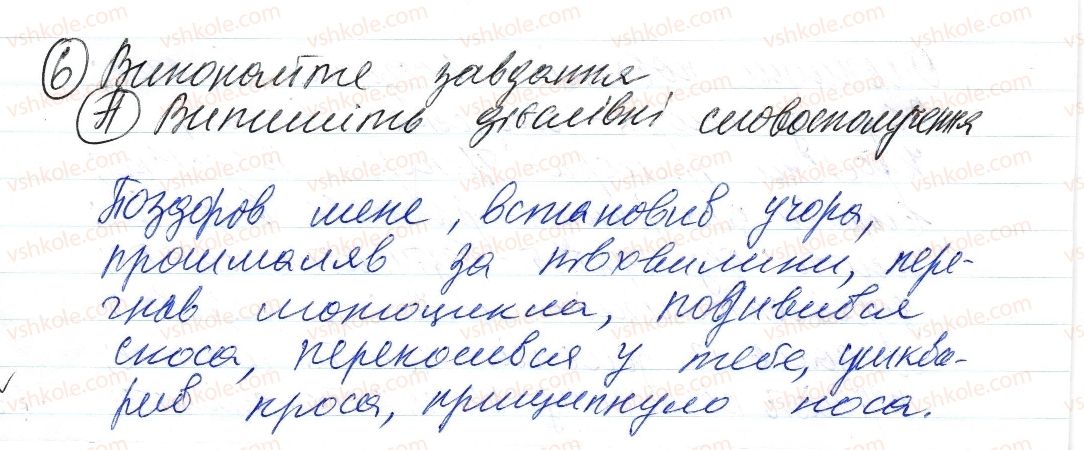 6 Виконайте завдання
А Випишіть дієслівні словосполучення
Поздоров мене, встановив учора,
прошмаляв за півхвилини, пере-
гнав мотоцикла, подивився
скоса, перекосився у тебе, ушква-
рив кроса, прищипнуло носа.